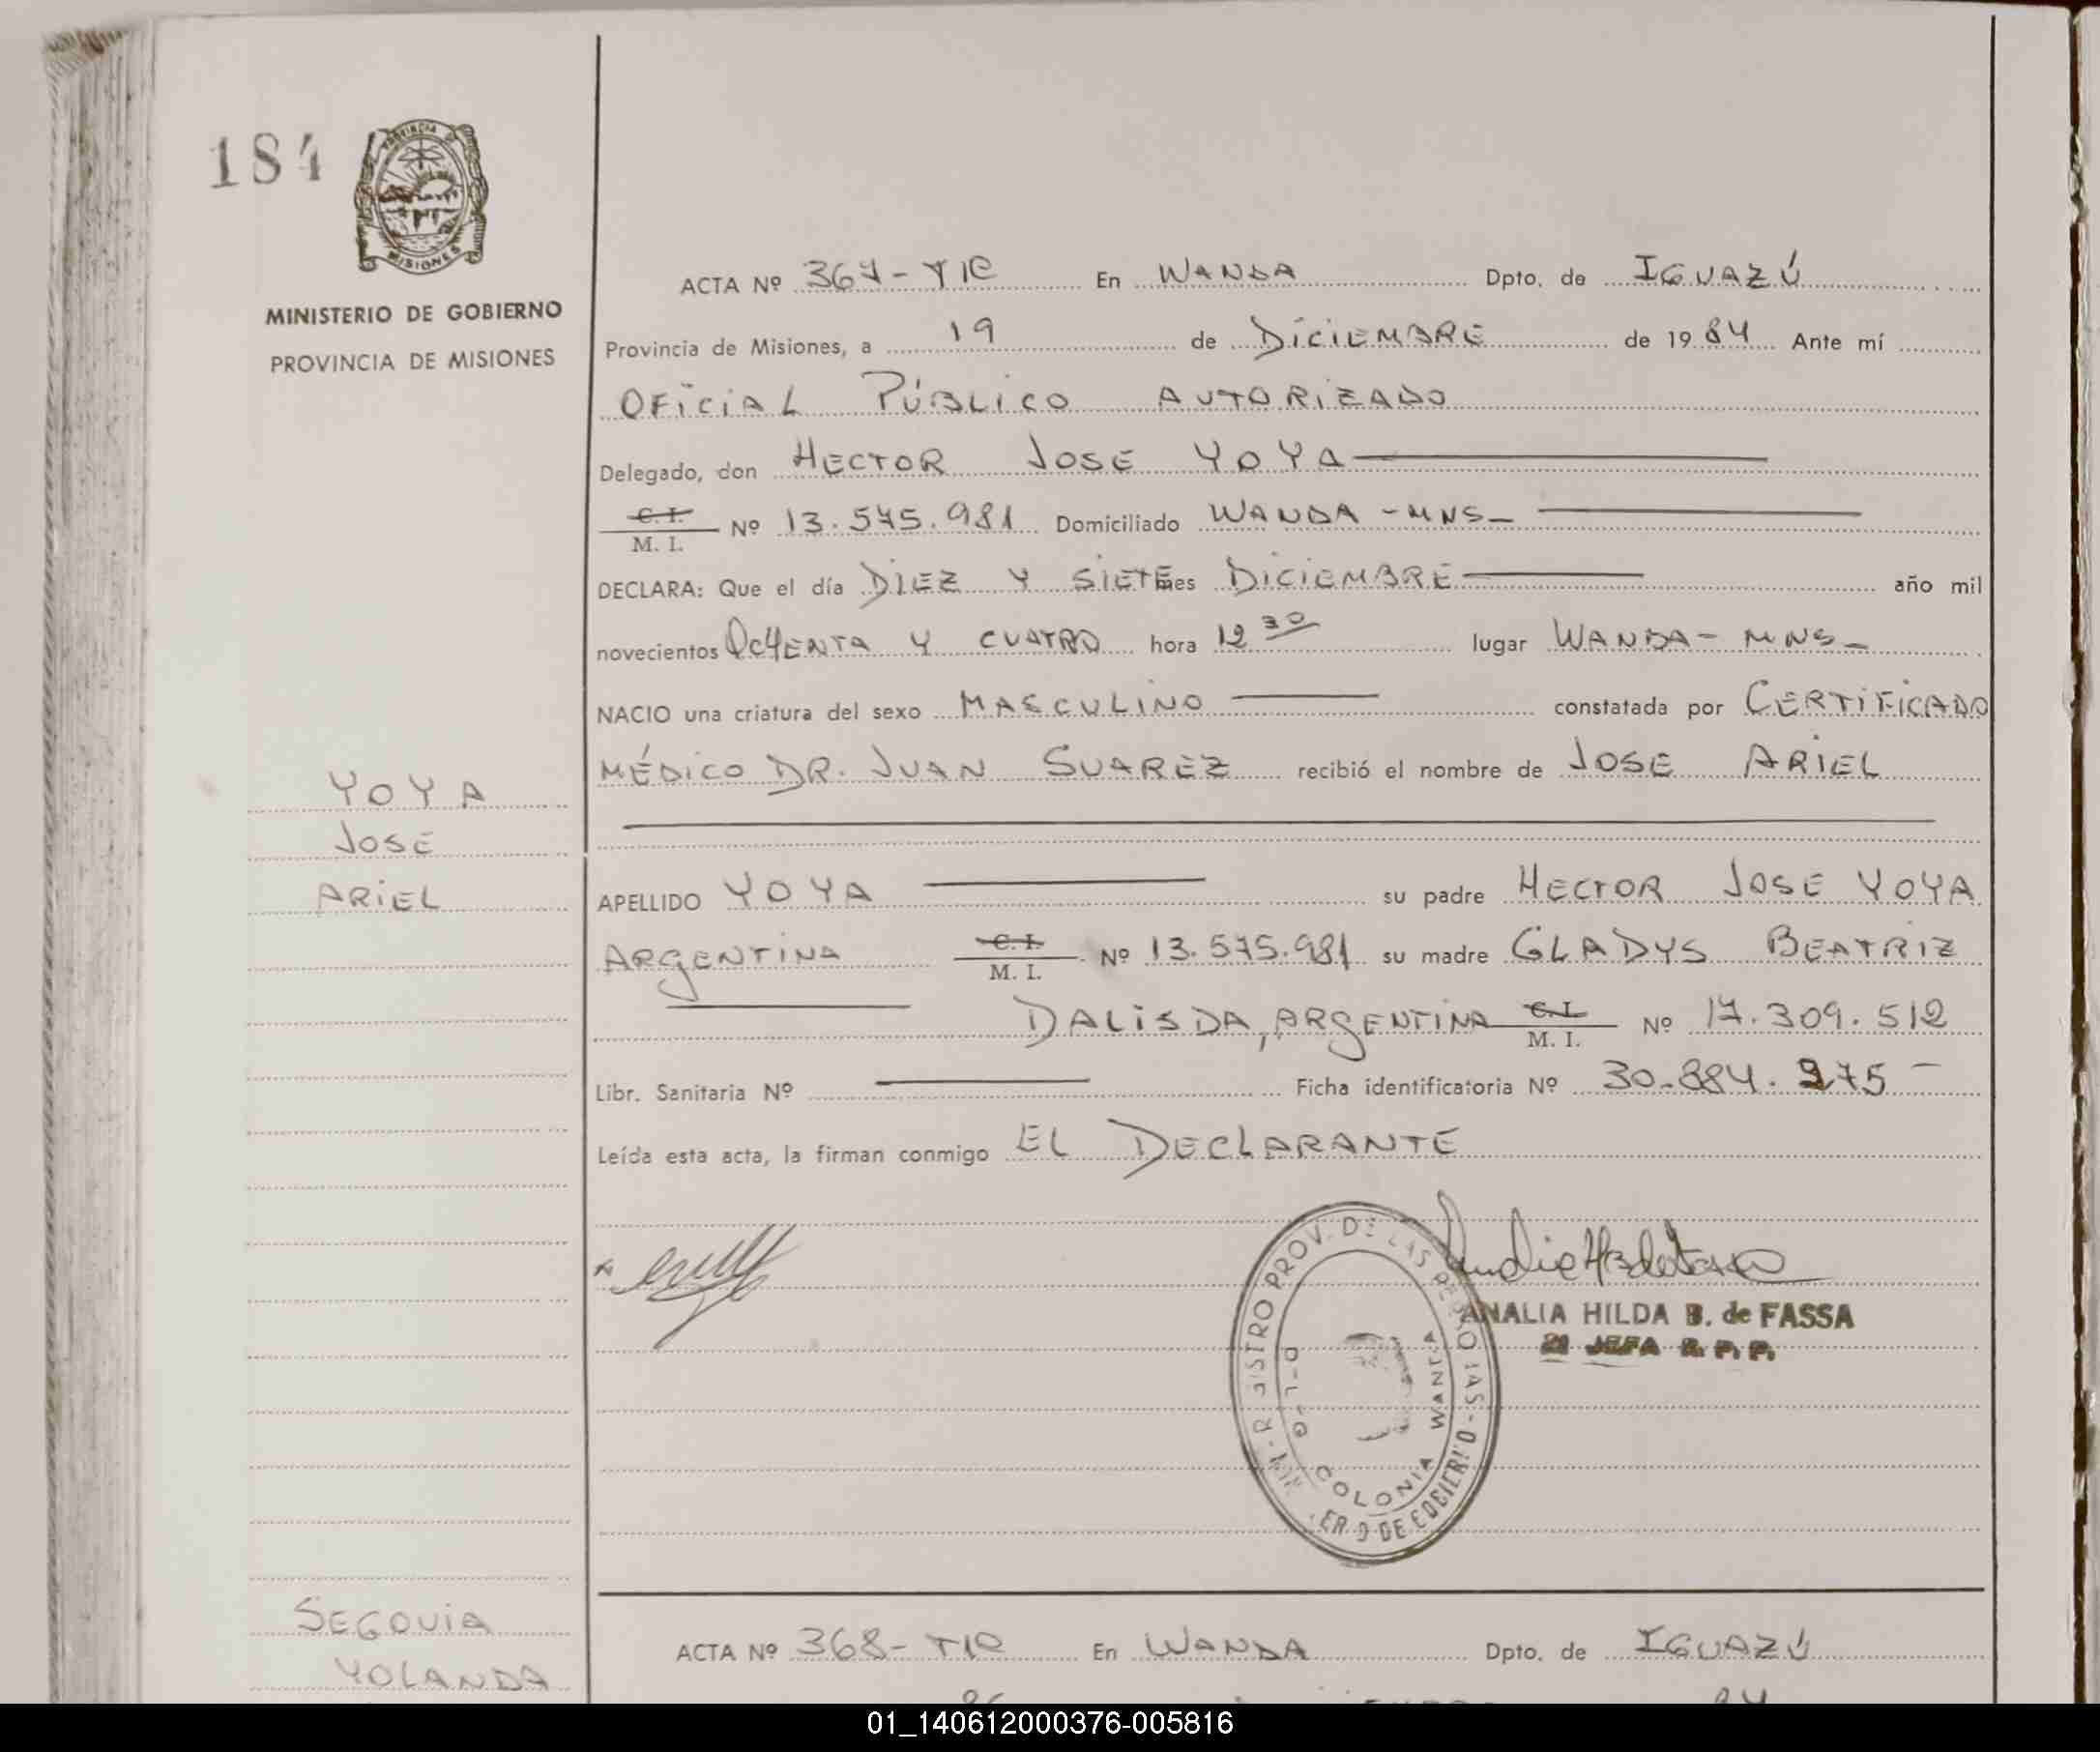 184
PROVINCIA DE
MISIONES
MINISTERIO DE GOBIERNO
PROVINCIA DE MISIONES
YOYA
JOSE
ARIEL
ACTA Nº 367-TIR En WANDA Dpto. de IGUAZÚ
Provincia de Misiones, a 19 de DICIEMBRE de 1984 Ante mí
OFICIAL PÚBLICO AUTORIZADO
Delegado, don HECTOR JOSE YOYA
C. I.
M. I. Nº 13.575.981 Domiciliado WANDA-MNS-
DECLARA: Que el día DIEZ Y SIETE mes DICIEMBRE año mil
novecientos OCHENTA Y CUATRO hora 12 30 lugar WANDA-MNS-
NACIO una criatura del sexo MASCULINO constatada por CERTIFICADO
MÉDICO DR. JUAN SUAREZ recibió el nombre de JOSE ARIEL
APELLIDO YOYA su padre HECTOR JOSE YOYA
ARGENTINA C. I. M. I. Nº 13.575.981 su madre GLADYS BEATRIZ
DALISDA, ARGENTINA C. I. M. I. Nº 17.309.512
Libr. Sanitaria Nº Ficha identificatoria Nº 30.884.275-
Leída esta acta, la firman conmigo EL DECLARANTE
PROV. DE LAS
COLONIA WANDA
ANALIA HILDA B. de FASSA
JEFA R. P. P.
SEGOVIA
YOLANDA
ACTA Nº 368-TIR En WANDA Dpto. de IGUAZÚ
01_140612000376-005816